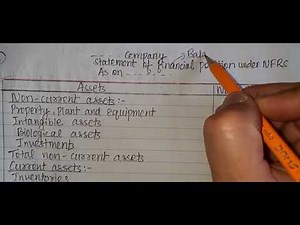 ... Company Bala
statement of financial position under NFRS
As on ... ...
Assets
N
Non-current assets :-
Property, Plant and equipment
Intangible assets
Biological assets
Investments
Total non-current assets
Current assets :-
Inventories